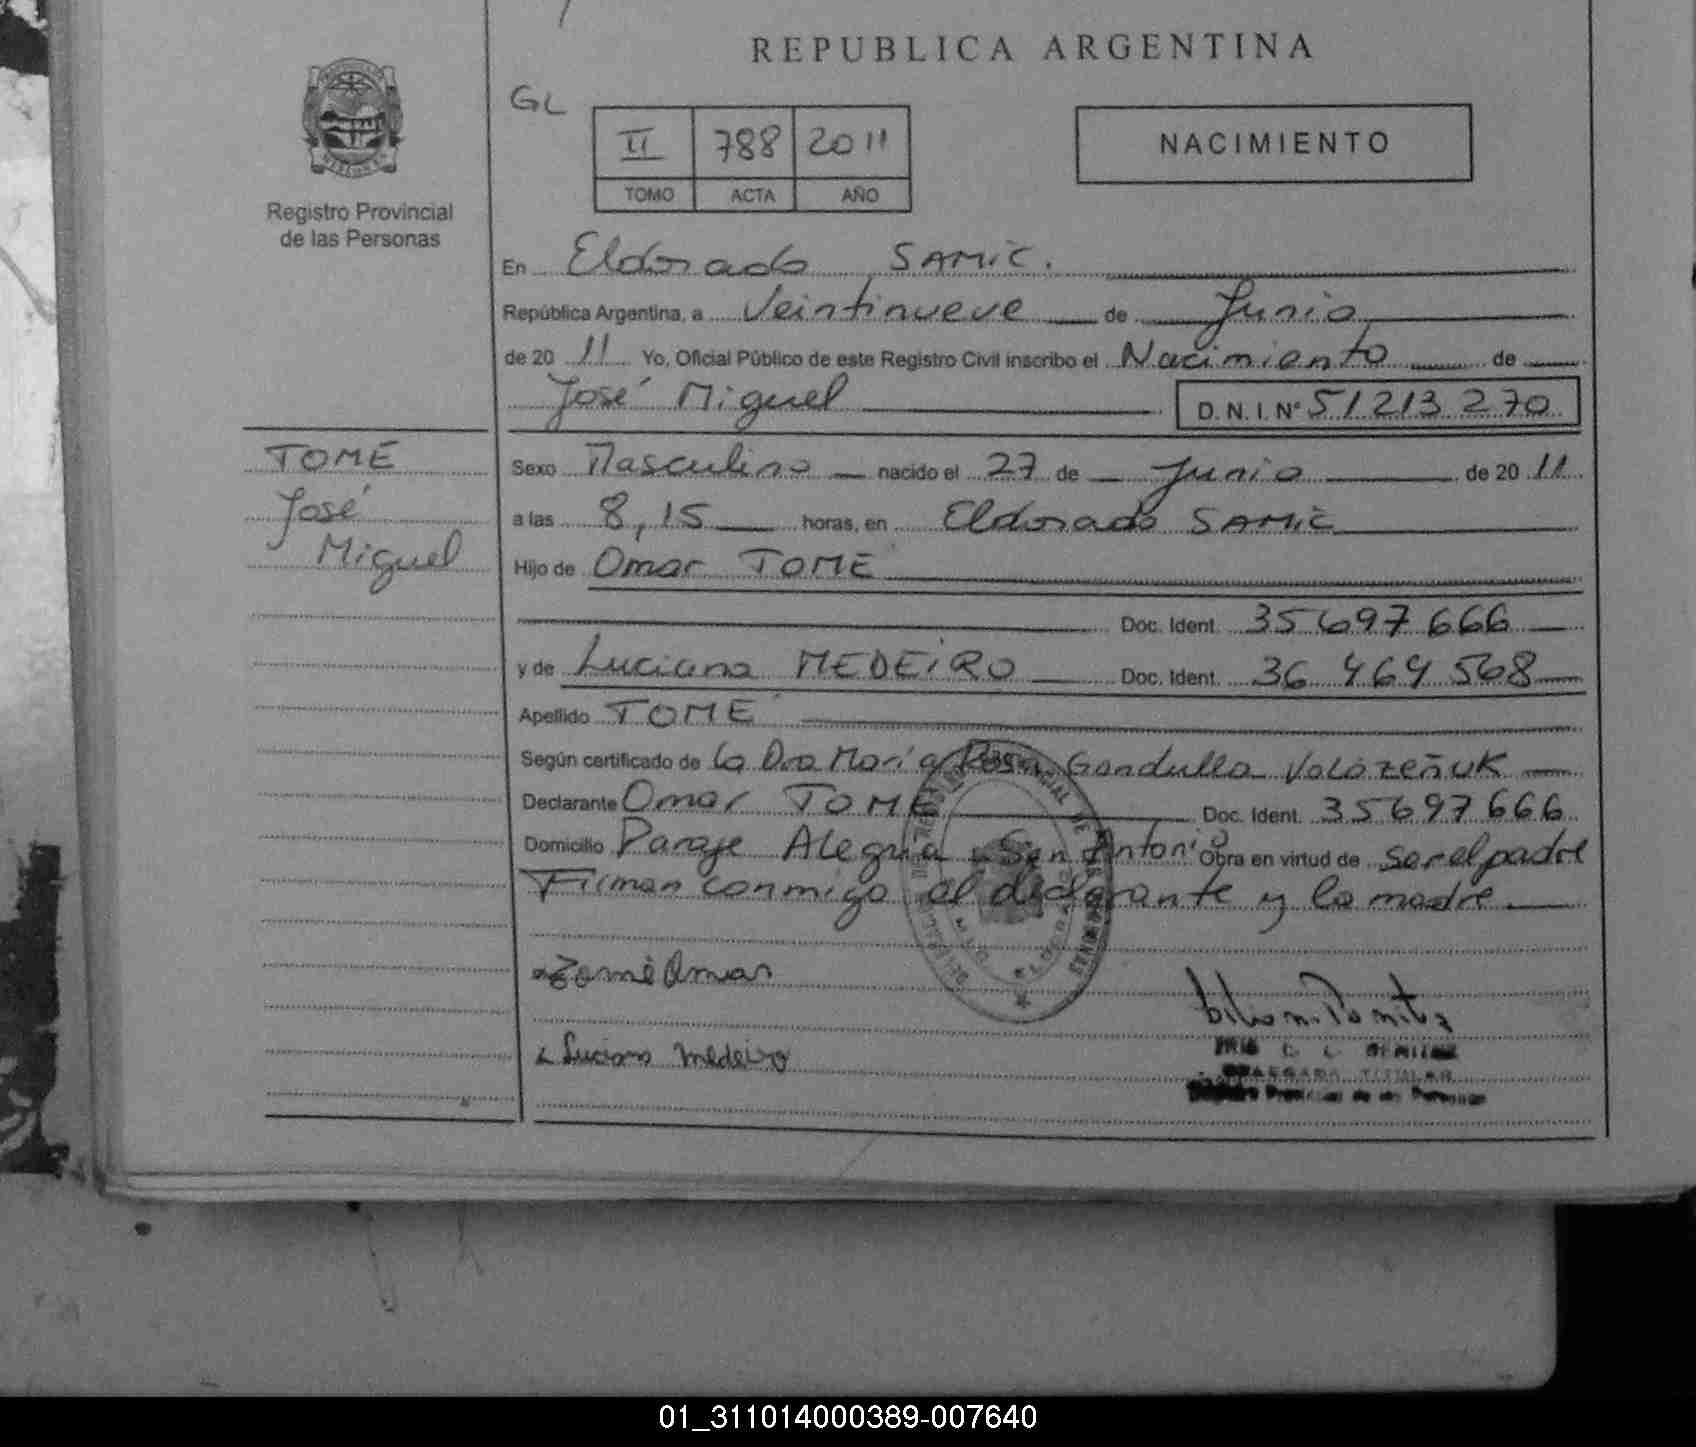 REPUBLICA ARGENTINA
GL
II 788 2011
TOMO ACTA AÑO
NACIMIENTO
Registro Provincial
de las Personas
En Eldorado SAMIC.
República Argentina, a Veintinueve de Junio
de 20 11 Yo, Oficial Público de este Registro Civil inscribo el Nacimiento de
José Miguel D.N.I.Nº 51213270
TOMÉ
José
Miguel
Sexo Masculino nacido el 27 de Junio de 20 11
a las 8,15 horas, en Eldorado SAMIC
Hijo de Omar TOMÉ
Doc. Ident. 35697666
y de Luciana MEDEIRO Doc. Ident. 36 464 568
Apellido TOMÉ
Según certificado de la Dra María Rosa Gondulla
Declarante Omar TOMÉ Doc. Ident. 35697666
Domicilio Paraje Alegría San Antonio Obra en virtud de ser el padre
Firman conmigo el declarante y la madre
Tomé Omar
Luciana Medeiro
TITULAR
01_311014000389-007640